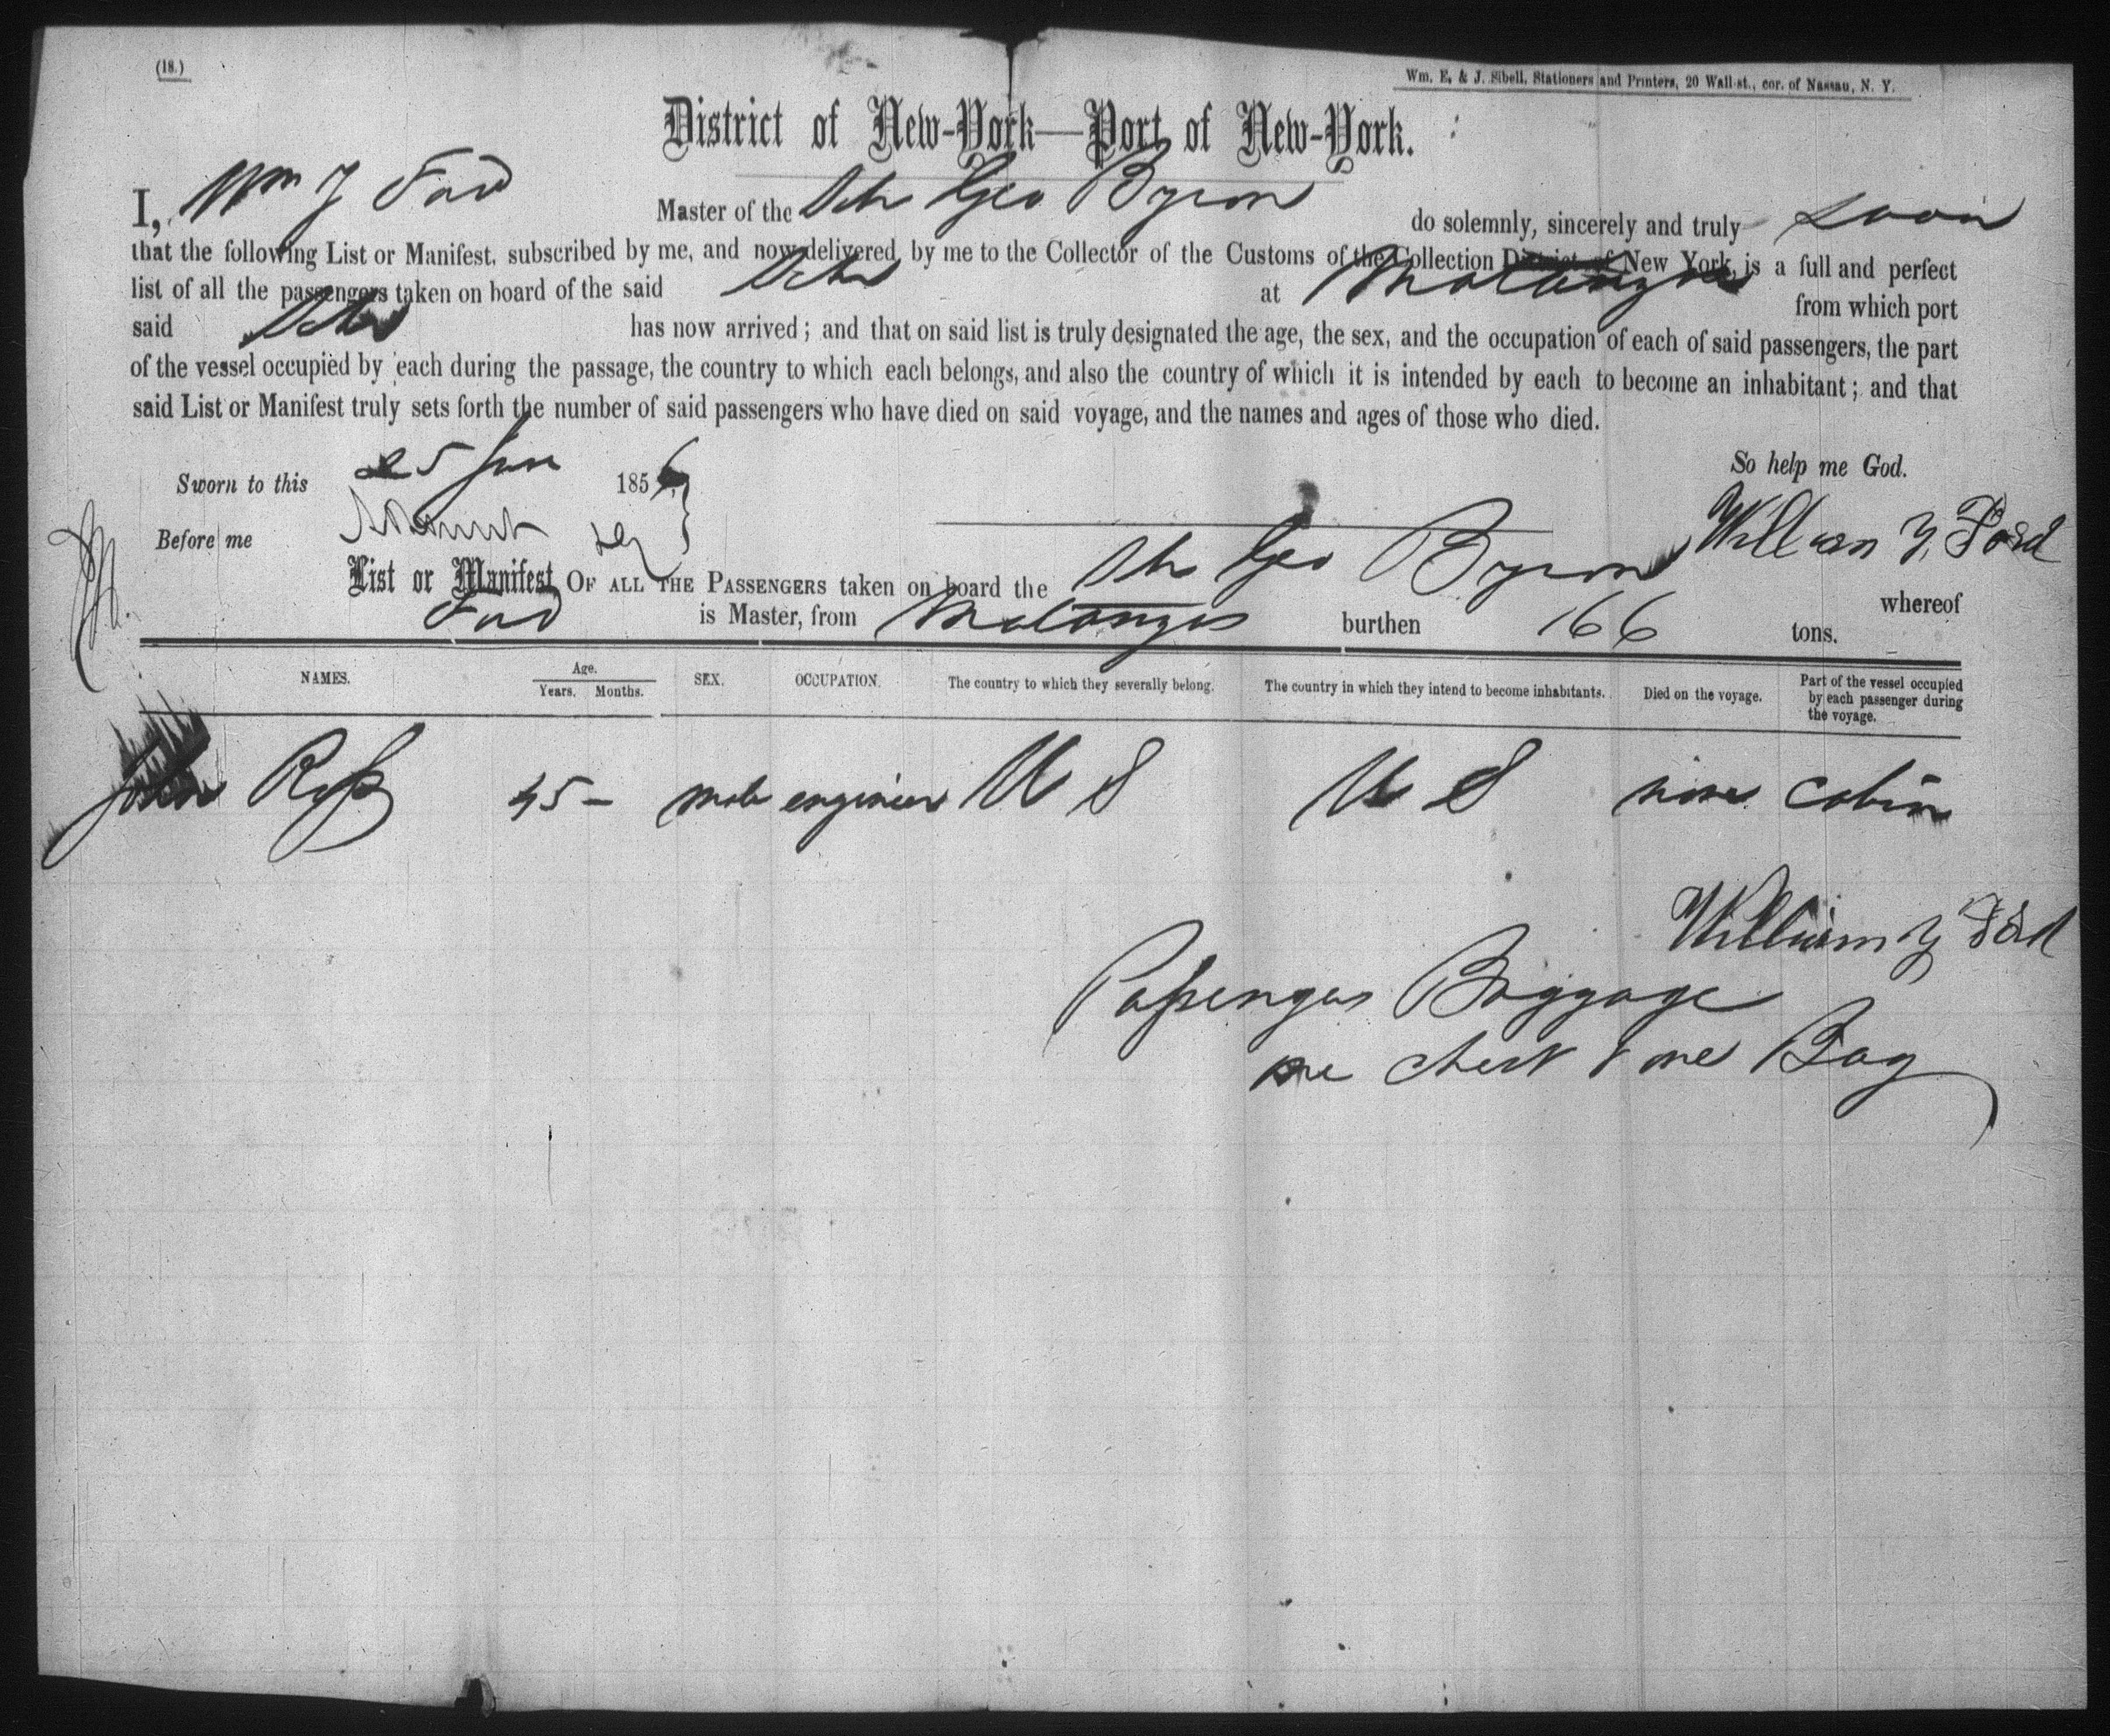 (18.)
Wm. E. & J. Sibell, Stationers and Printers, 20 Wall-st., cor. of Nassau, N. Y.
District of New-York—Port of New-York.
I, Wm Y Ford Master of the Sch Geo Byron do solemnly, sincerely and truly swear
that the following List or Manifest, subscribed by me, and now delivered by me to the Collector of the Customs of the Collection District of New York, is a full and perfect
list of all the passengers taken on board of the said Sch at Matanzas from which port
said Sch has now arrived; and that on said list is truly designated the age, the sex, and the occupation of each of said passengers, the part
of the vessel occupied by each during the passage, the country to which each belongs, and also the country of which it is intended by each to become an inhabitant; and that
said List or Manifest truly sets forth the number of said passengers who have died on said voyage, and the names and ages of those who died.
So help me God.
Sworn to this 25 June 1856
Before me William Y. Ford
List or Manifest OF ALL THE PASSENGERS taken on board the Sch Geo Byron whereof
Ford is Master, from Matanzas burthen 166 tons.
NAMES. Age. Years. Months. SEX. OCCUPATION. The country to which they severally belong. The country in which they intend to become inhabitants. Died on the voyage. Part of the vessel occupied by each passenger during the voyage.
John Ross 45 – male engineer U S U S none cabin
William Y Ford
Passengers Baggage
one chest & one Bag